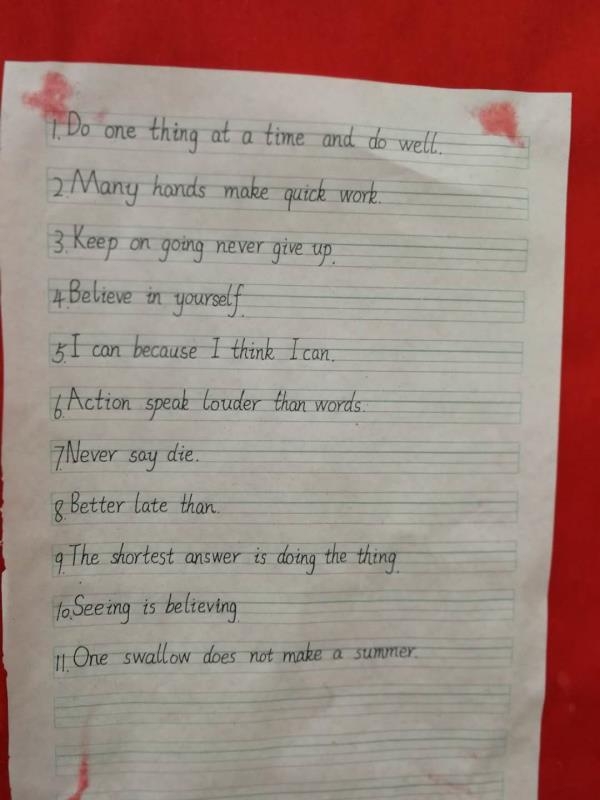 1. Do one thing at a time and do well.
2. Many hands make quick work.
3. Keep on going never give up.
4. Believe in yourself.
5. I can because I think I can.
6. Action speak louder than words.
7. Never say die.
8. Better late than.
9. The shortest answer is doing the thing.
10. Seeing is believing.
11. One swallow does not make a summer.